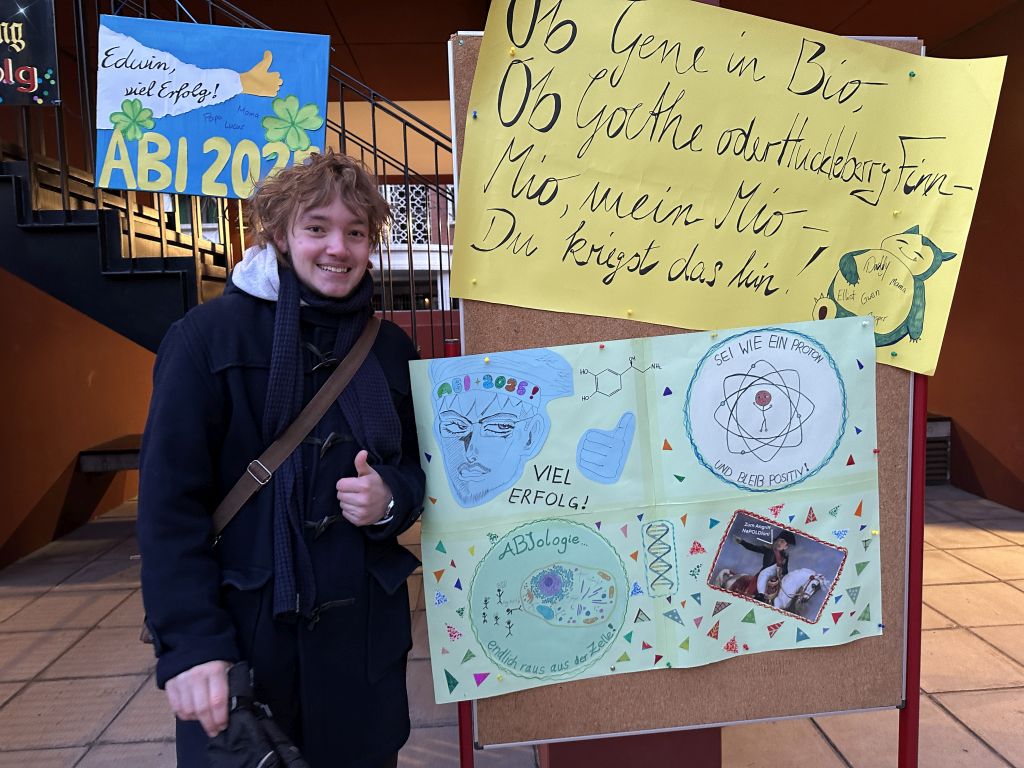 ng
olg
Edwin,
viel Erfolg!
Mama
Papa Lucas
ABI 2025
Ob Gene in Bio,
Ob Goethe oder Huckleberry Finn –
Mio, mein Mio –
Du kriegst das hin!
Daddy
Mama
Elliot Gwen
ABI + 2025!
HO
HO
NH₂
VIEL
ERFOLG!
SEI WIE EIN PROTON
UND BLEIB POSITIV!
ABIologie...
endlich raus aus der Zelle!
Zum Angriff
NaPOLDIan!